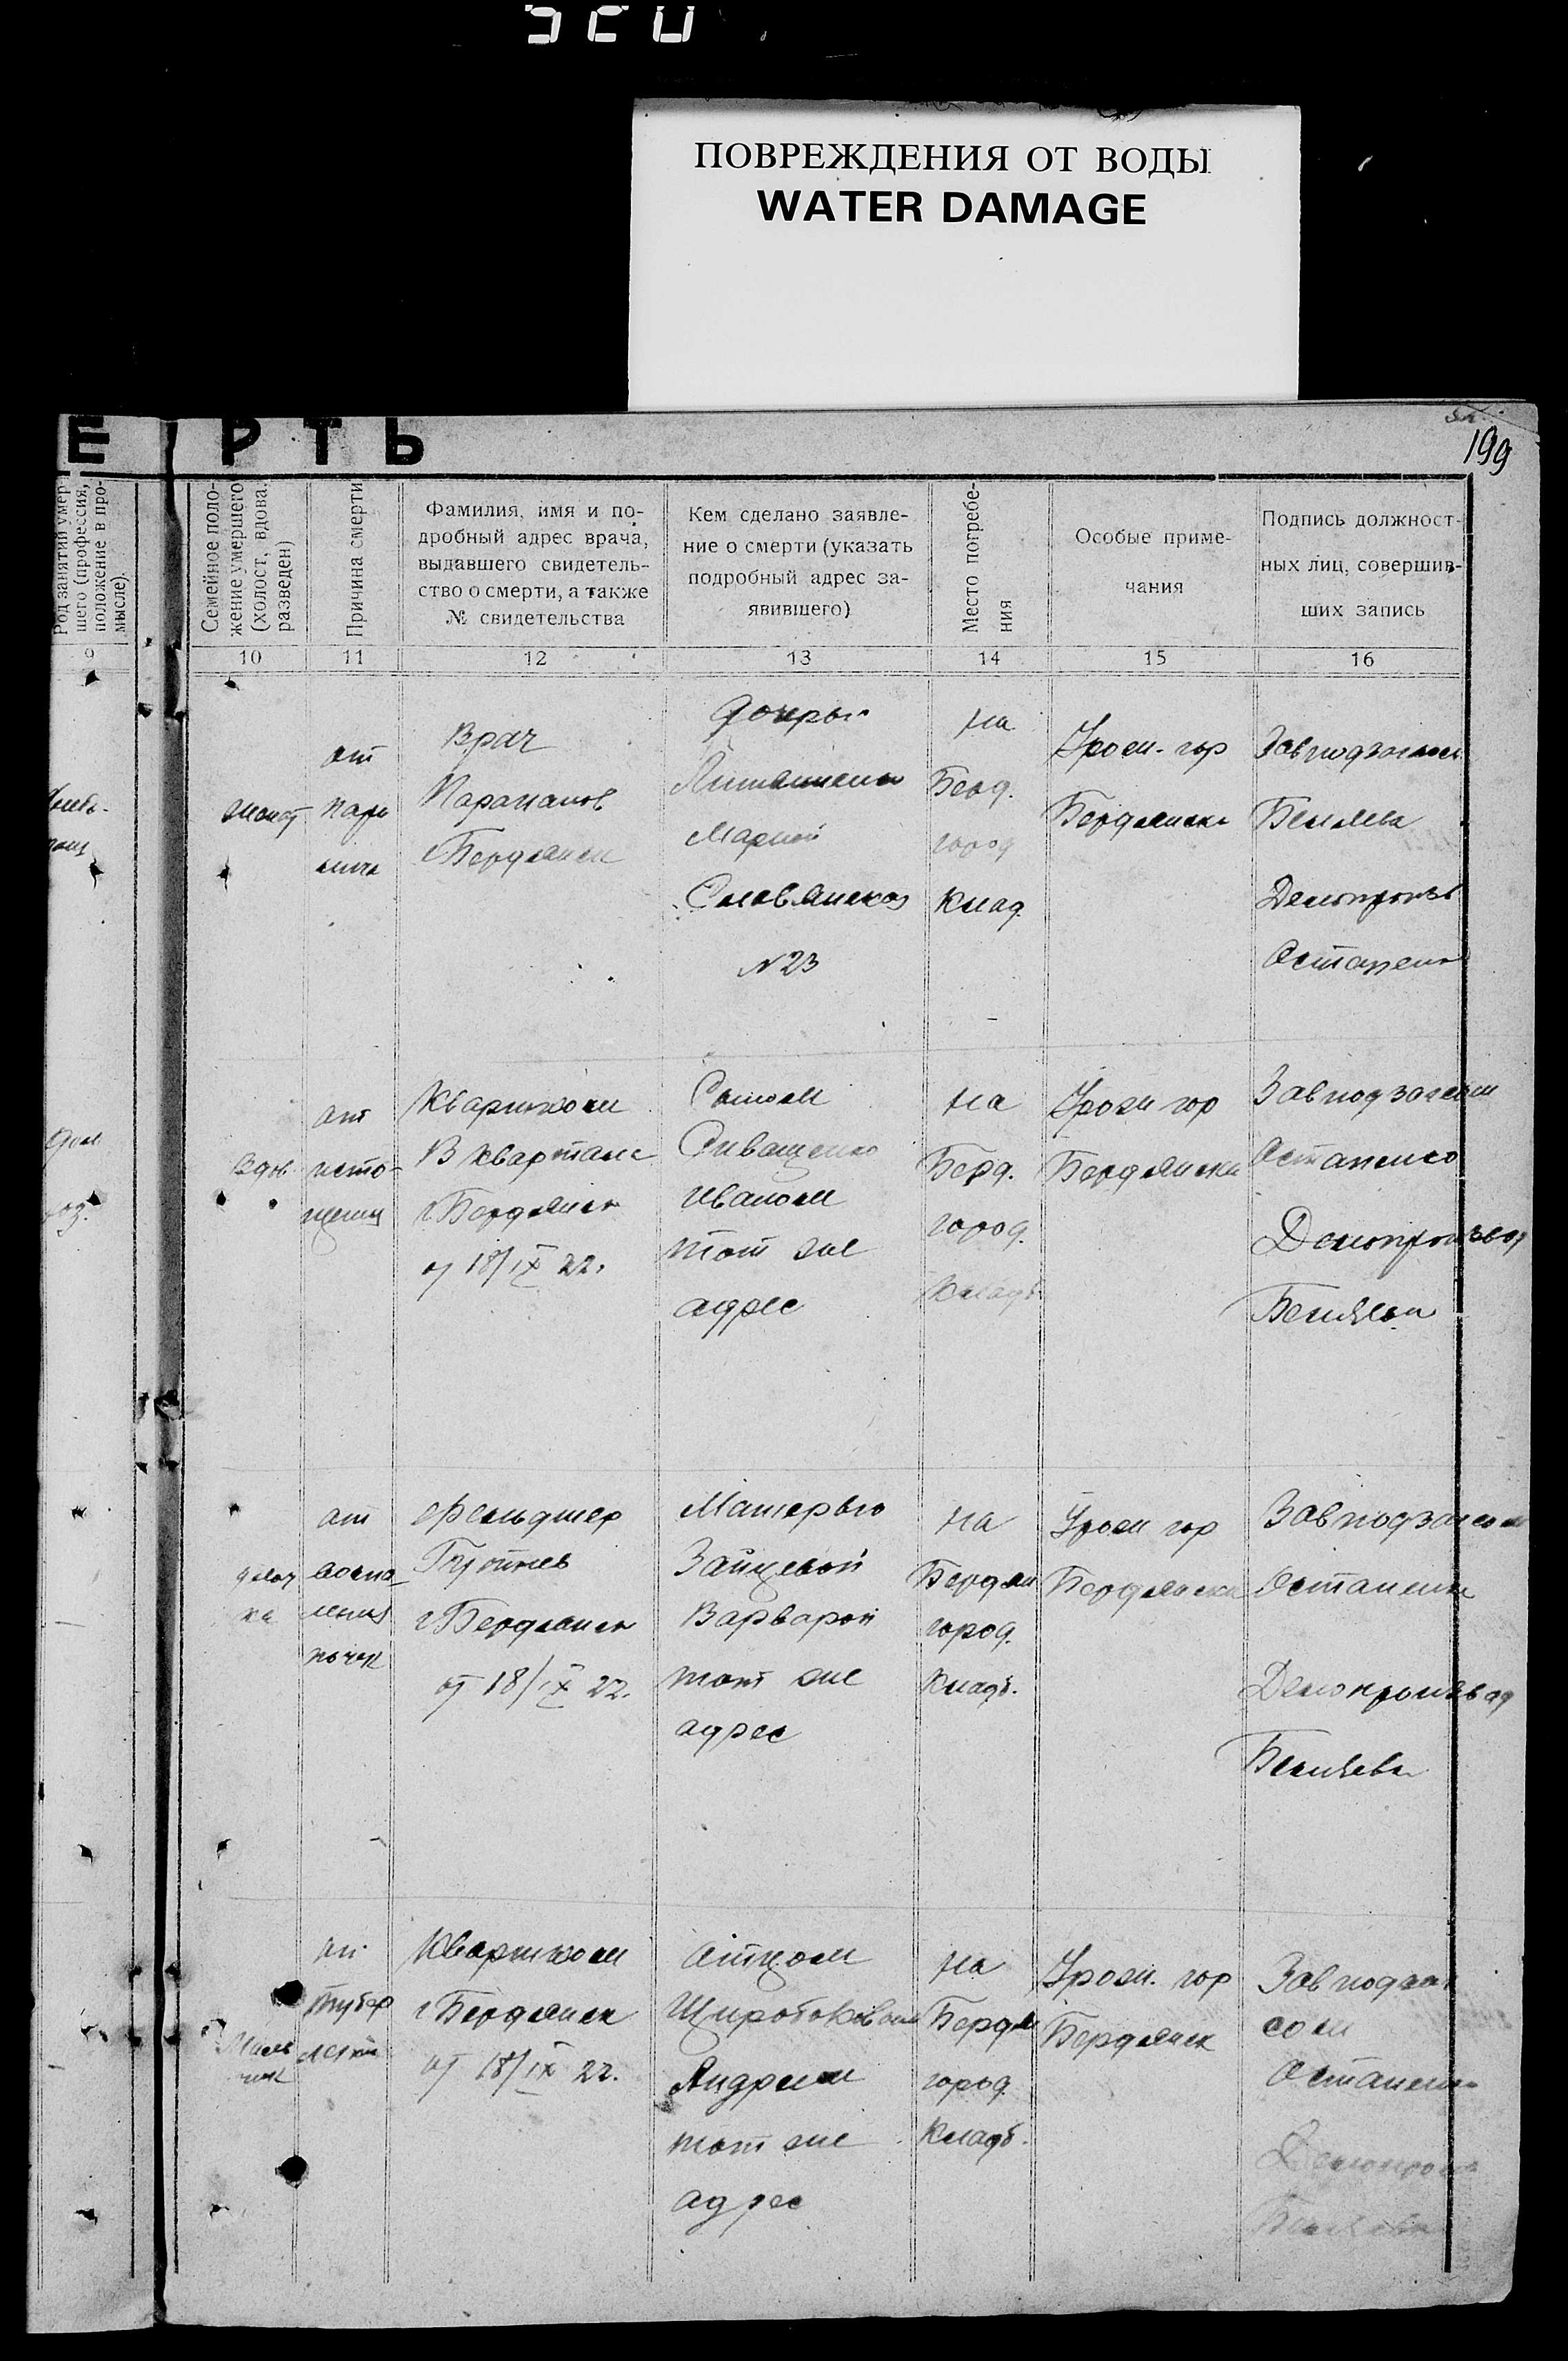 ПОВРЕЖДЕНИЯ ОТ ВОДЫ
WATER DAMAGE
199
Е РТЬ
Род занятий умер-
шего (профессия,
положение в про-
мысле).
Семейное поло-
жение умершего
(холост, вдова.
разведен)
Причина смерти
Фамилия, имя и по-
дробный адрес врача,
выдавшего свидетель-
ство о смерти, а также
№ свидетельства
Кем сделано заявле-
ние о смерти (указать
подробный адрес за-
явившего)
Место погребе-
ния
Особые приме-
чания
Подпись должност-
ных лиц, совершив-
ших запись
9
10
11
12
13
14
15
16
женат
от
Врач
г Бердянск
Марией
Славянская
N 23
на
Берд.
город
клад.
Урож. гор
Бердянска
Завподзагсом
Беляева
Делопроизв
Остапенко
вдов.
от
исто-
щения
Квартхоз
В квартале
г Бердянск
от 18/IX 22.
Сыном
Сиващенко
Иваном
тот же
адрес
на
Берд.
город.
кладб.
Урож гор
Бердянска
Завподзагсом
Остапенко
Делопроизвод
Беляева
от
воспа-
ления
почек
Фельдшер
г Бердянск
от 18/IX 22.
Матерью
Зайцевой
Варварой
тот же
адрес
на
Бердян
город.
кладб.
Урож гор
Бердянска
Завподзагсом
Остапенко
Делопроизвод
Беляева
Маль
чик
от
тубер
легких
Квартхоз
г Бердянск
от 18/IX 22.
Отцом
Щиробоковым
Андреем
тот же
адрес
на
Бердя
город.
кладб.
Урож. гор
Бердянск
Завподзаг
сом
Остапенко
Делопроизв
Беляева